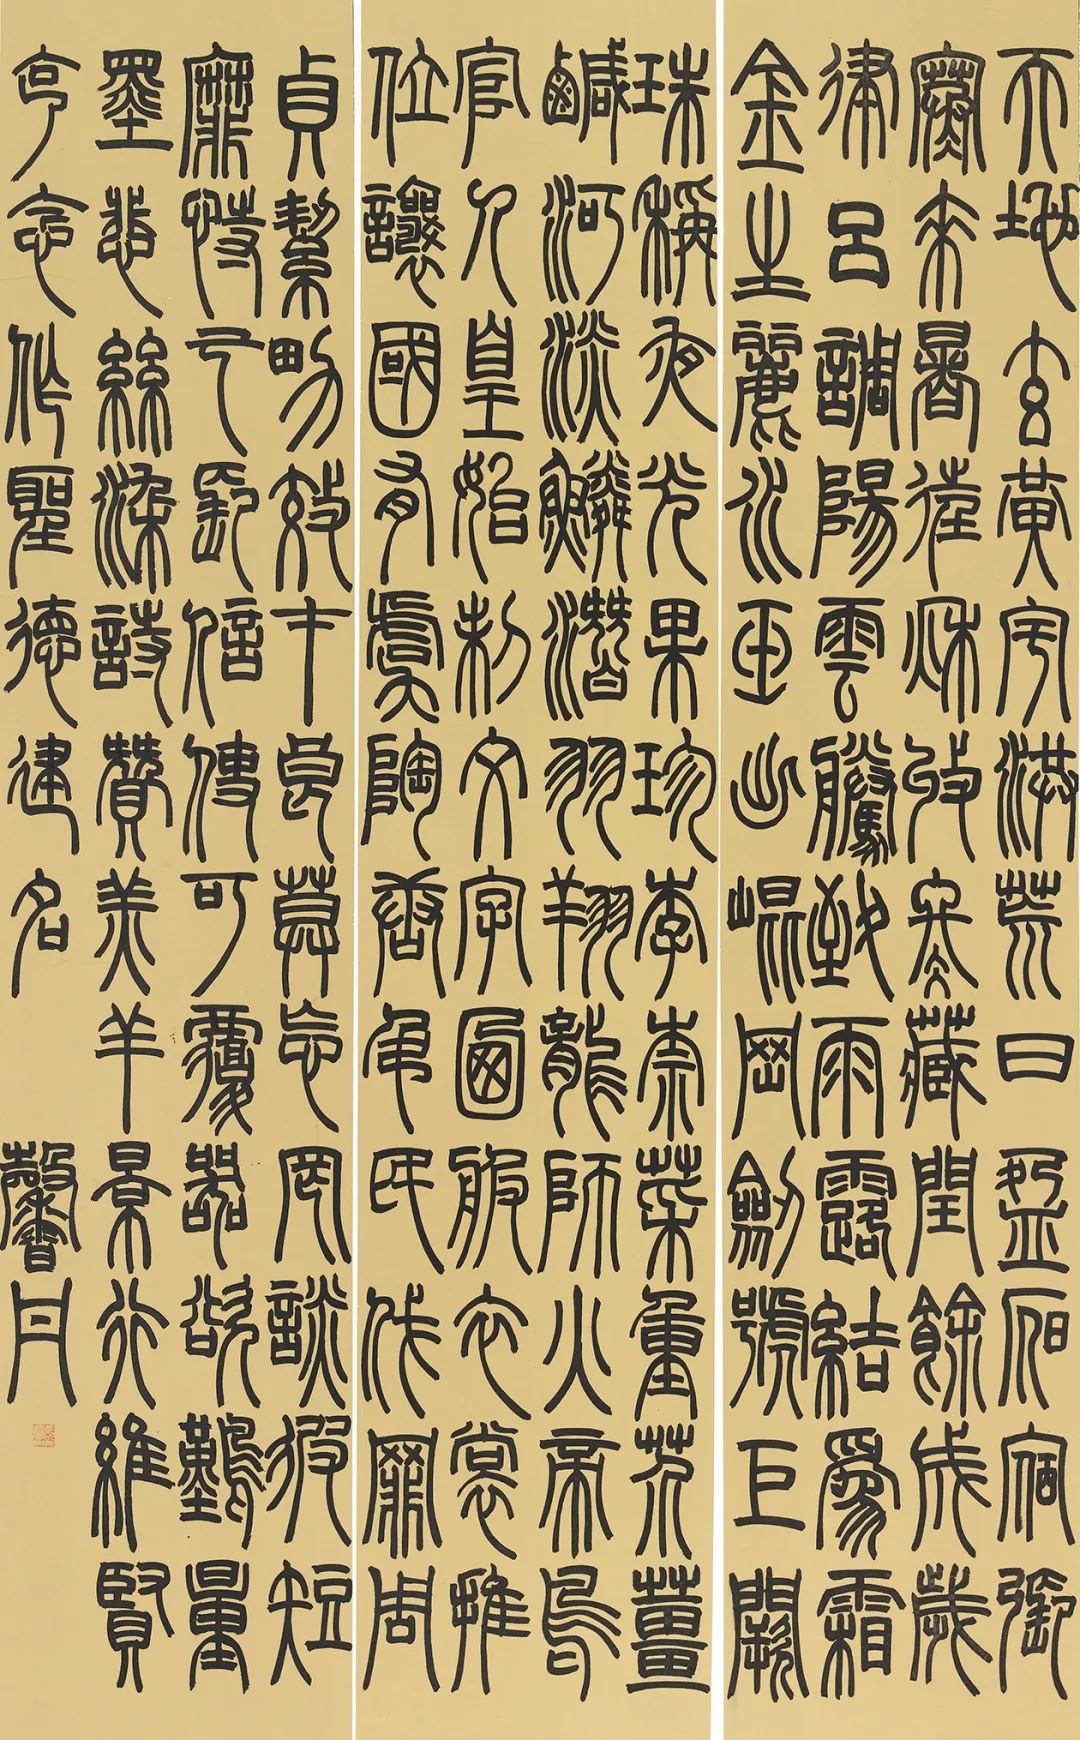 天地玄黃宇洪荒日盈昃宿張
寒來暑往秋收冬藏閏餘成歲
律呂調陽雲騰致雨露結爲霜
金生麗水玉出崐岡劍號巨闕
珠稱夜光果珍李柰菜重芥薑
鹹河淡鱗潛羽翔龍師火帝鳥
官人皇始制文字乃服衣裳推
位讓國有虞陶唐弔民伐罪周
貞絜男效才良莫忘罔談彼短
靡恃己長信使可覆器欲難量
墨悲絲染詩贊羔羊景行維賢
克念作聖德建名 馨丹